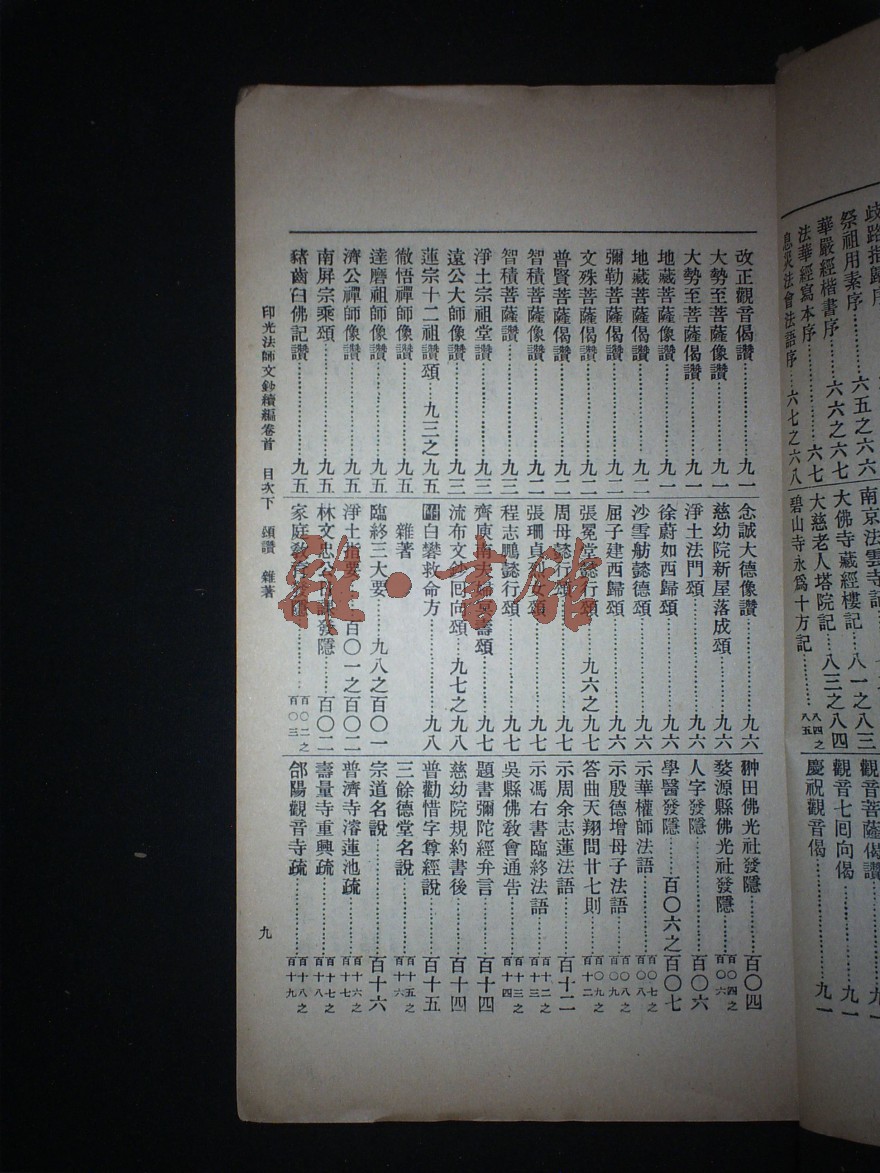 歧路指歸序
祭祖用素序………六五之六六
華嚴經楷書序…六六之六七
法華經寫本序………六七
息災法會法語序…六七之六八
南京法雲寺記
大佛寺藏經樓記…八一之八三
大慈老人塔院記…八三之八四
碧山寺永爲十方記………八四之八五
觀音菩薩偈讚………九一
觀音七囘向偈………九一
慶祝觀音偈………九一
改正觀音偈讚………九一
大勢至菩薩像讚………九一
大勢至菩薩偈讚………九一
地藏菩薩像讚………九一
地藏菩薩偈讚………九二
彌勒菩薩偈讚………九二
文殊菩薩偈讚………九二
普賢菩薩偈讚………九二
智積菩薩偈讚………九二
智積菩薩讚………九三
淨土宗祖堂讚………九三
遠公大師像讚………九三
蓮宗十二祖讚頌…九三之九五
徹悟禪師像讚………九五
達磨祖師像讚………九五
濟公禪師像讚………九五
南屏宗乘頌………九五
豬齒臼佛記讚………九五
念誠大德像讚………九六
慈幼院新屋落成頌………九六
淨土法門頌………九六
徐蔚如西歸頌………九六
沙雪舫懿德頌………九六
屈子建西歸頌………九六
張冕堂懿行頌…九六之九七
周母懿行頌………九七
張珊貞烈女頌………九七
程志鵬懿行頌………九七
齊庚南夫婦冥壽頌………九七
流布文鈔囘向頌…九七之九八
附白礬救命方………九八
雜著
臨終三大要…九八之百〇一
淨土指要…百〇一之百〇二
林文忠公日課發隱…百〇二
家庭教育發隱………百〇二之百〇三
翀田佛光社發隱………百〇四
婺源縣佛光社發隱………百〇四之百〇六
人字發隱………百〇六
學醫發隱…百〇六之百〇七
示華權師法語………百〇七之百〇八
示殷德增母子法語………百〇八之百〇九
答曲天翔問廿七則………百〇九之百十二
示周余志蓮法語………百十二
示馮右書臨終法語………百十二之百十三
吳縣佛教會通告………百十三之百十四
題書彌陀經弁言………百十四
慈幼院規約書後………百十四
普勸惜字尊經說………百十五
三餘德堂名說………百十五之百十六
宗道名說………百十六
普濟寺濬蓮池疏………百十六之百十七
壽量寺重興疏………百十七之百十八
郃陽觀音寺疏………百十八之百十九
印光法師文鈔續編卷首 目次下 頌讚 雜著
九
雜·書館